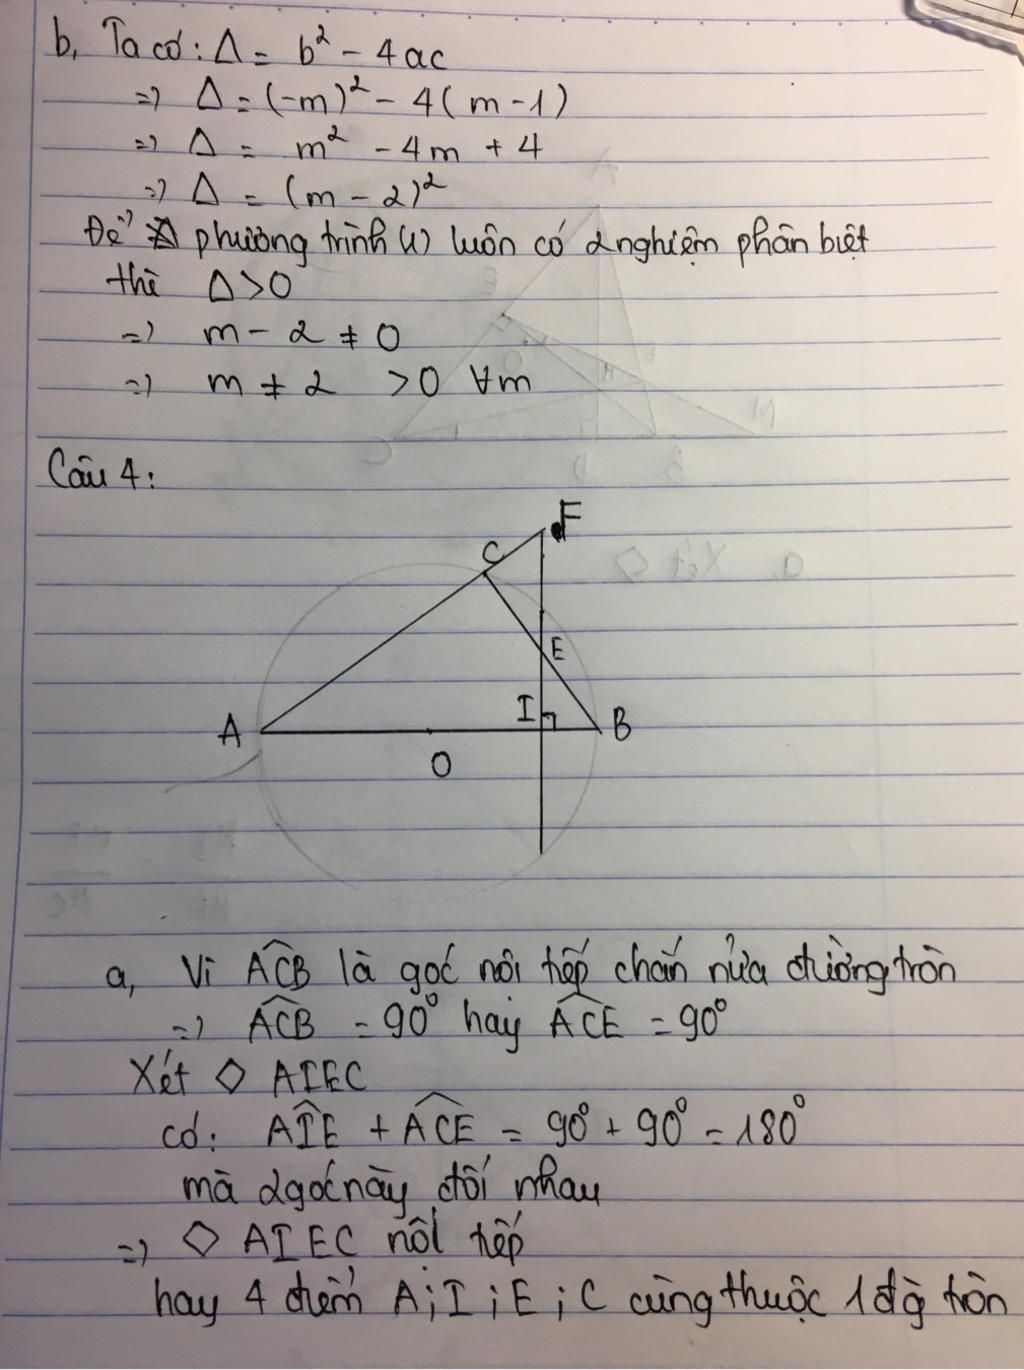 b, Ta có: Δ = b² - 4ac
=> Δ = (-m)² - 4(m-1)
=> Δ = m² - 4m + 4
=> Δ = (m - 2)²
Để phương trình (1) luôn có 2 nghiệm phân biệt
thì Δ > 0
=> m - 2 ≠ 0
=> m ≠ 2 > 0 ∀m
Câu 4:
F
C
E
I
A
B
O
a, Vì ACB là góc nội tiếp chắn nửa đường tròn
=> ACB = 90° hay ACE = 90°
Xét ◇ AIEC
có: AIE + ACE = 90° + 90° = 180°
mà 2 góc này đối nhau
=> ◇ AIEC nội tiếp
hay 4 điểm A; I; E; C cùng thuộc 1 đg tròn